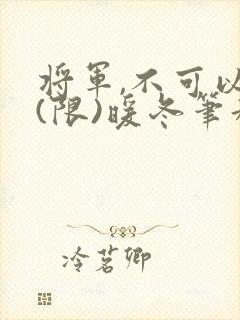 將軍,不可以
(限)暖冬筆
冷茗卿